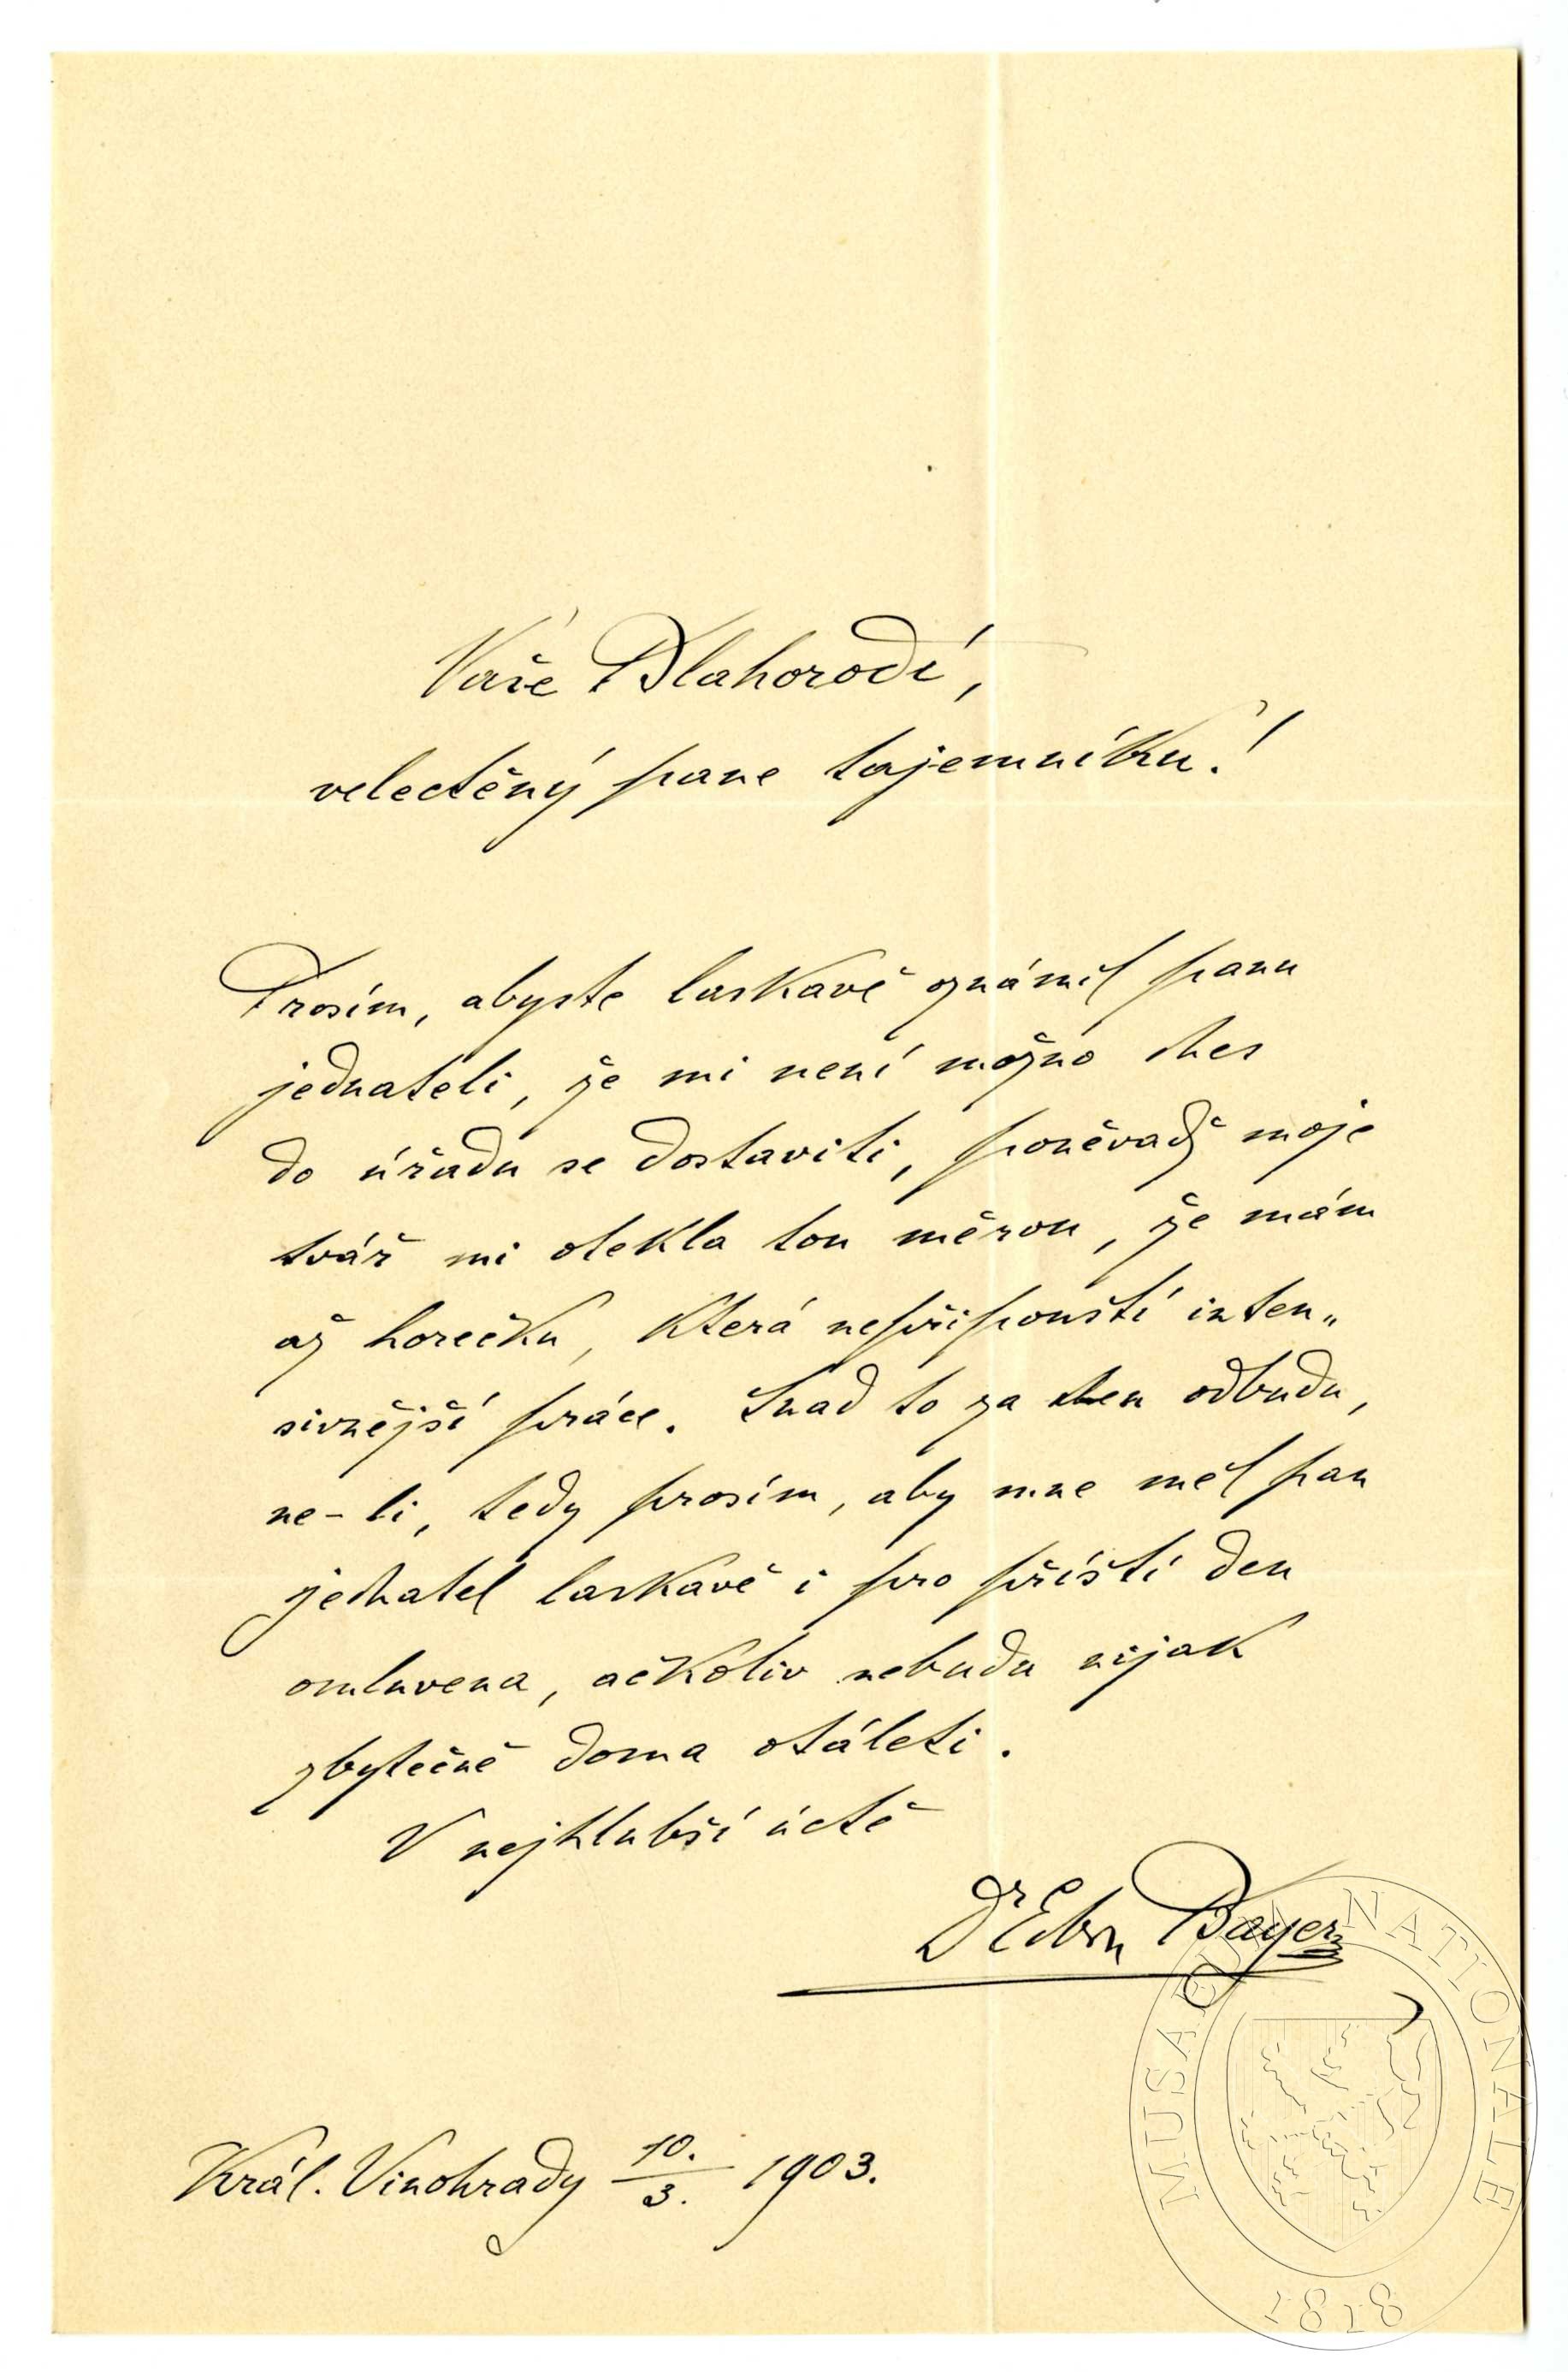 Vaše Blahorodí,
velectěný pane tajemníku!
Prosím, abyste laskavě oznámil panu
jednateli, že mi není možno dnes
do úřadu se dostaviti, poněvadž moje
tvář mi otekla tou měrou, že mám
až horečku, která nepřipouští inten„
sivnější práce. Snad to za den odbudu,
ne-li, tedy prosím, aby mne měl pan
jednatel laskavě i pro příští den
omluvena, ačkoliv nebudu nijak
zbytečně doma otáleti.
V nejhlubší úctě
Dr Bayer
Král. Vinohrady 10./3. 1903.
MUSAEUM NATIONALE
1818